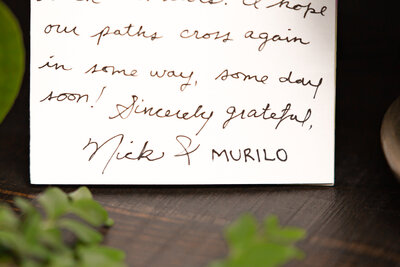 I hope
our paths cross again
in some way, some day
soon! Sincerely grateful,
Nick & MURILO